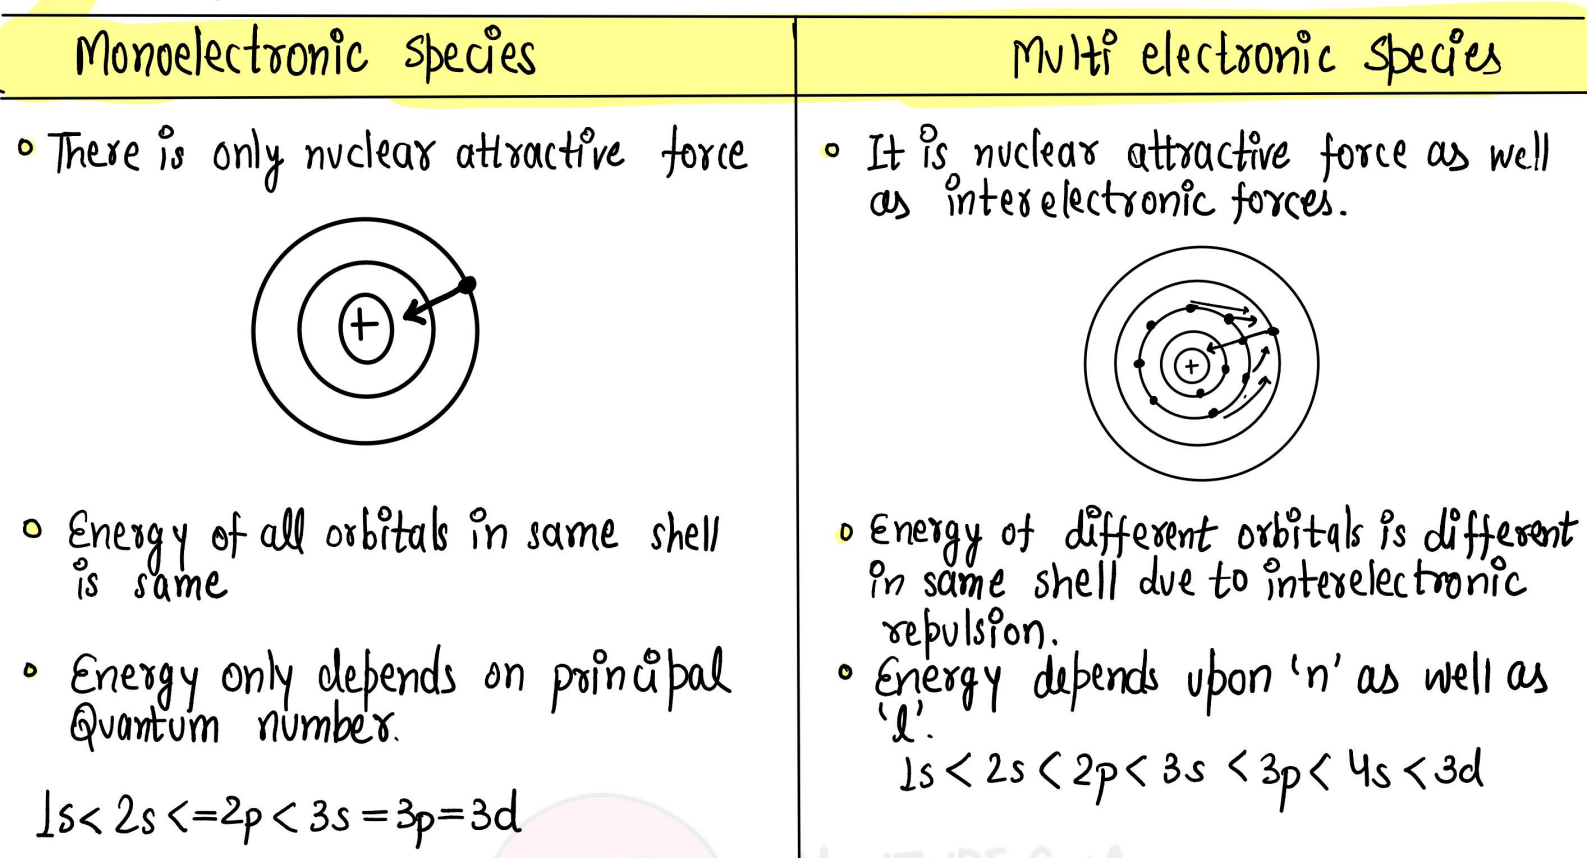 Monoelectronic species
Multi electronic species
• There is only nuclear attractive force
+
• Energy of all orbitals in same shell
is same
• Energy only depends on principal
Quantum number.
1s < 2s <= 2p < 3s = 3p = 3d
• It is nuclear attractive force as well
as interelectronic forces.
+
• Energy of different orbitals is different
in same shell due to interelectronic
repulsion.
• Energy depends upon 'n' as well as
'l'.
1s < 2s < 2p < 3s < 3p < 4s < 3d